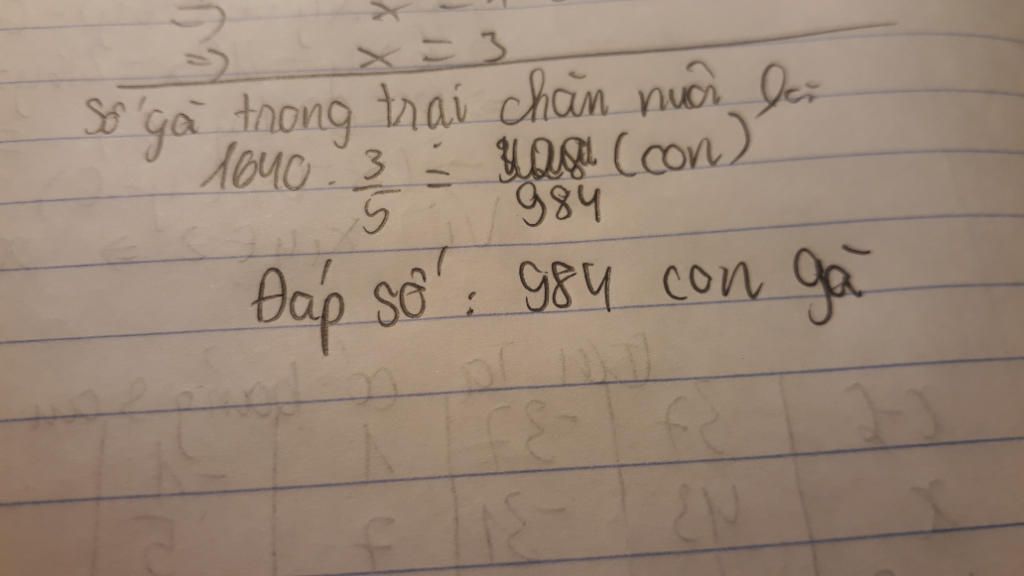 ⇒ x =
⇒ x = 3
Số gà trong trại chăn nuôi là:
1640 . 3/5 = (con)
984
Đáp số : 984 con gà